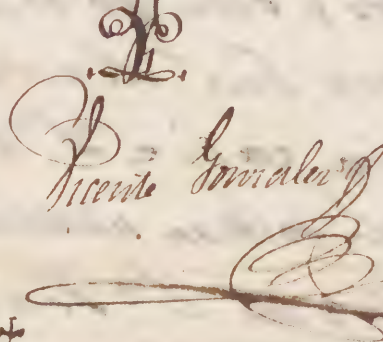 Vicente Gonzalez